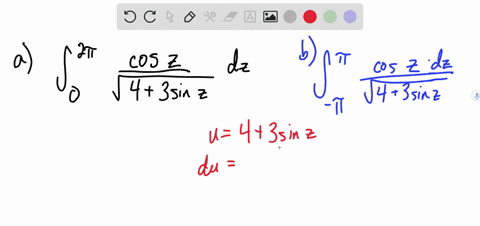 a) ∫₀^{2π} cos z / √(4+3sin z) dz
b) ∫_{-π}^{π} cos z · dz / √(4+3sin z)
u = 4+3sin z
du =